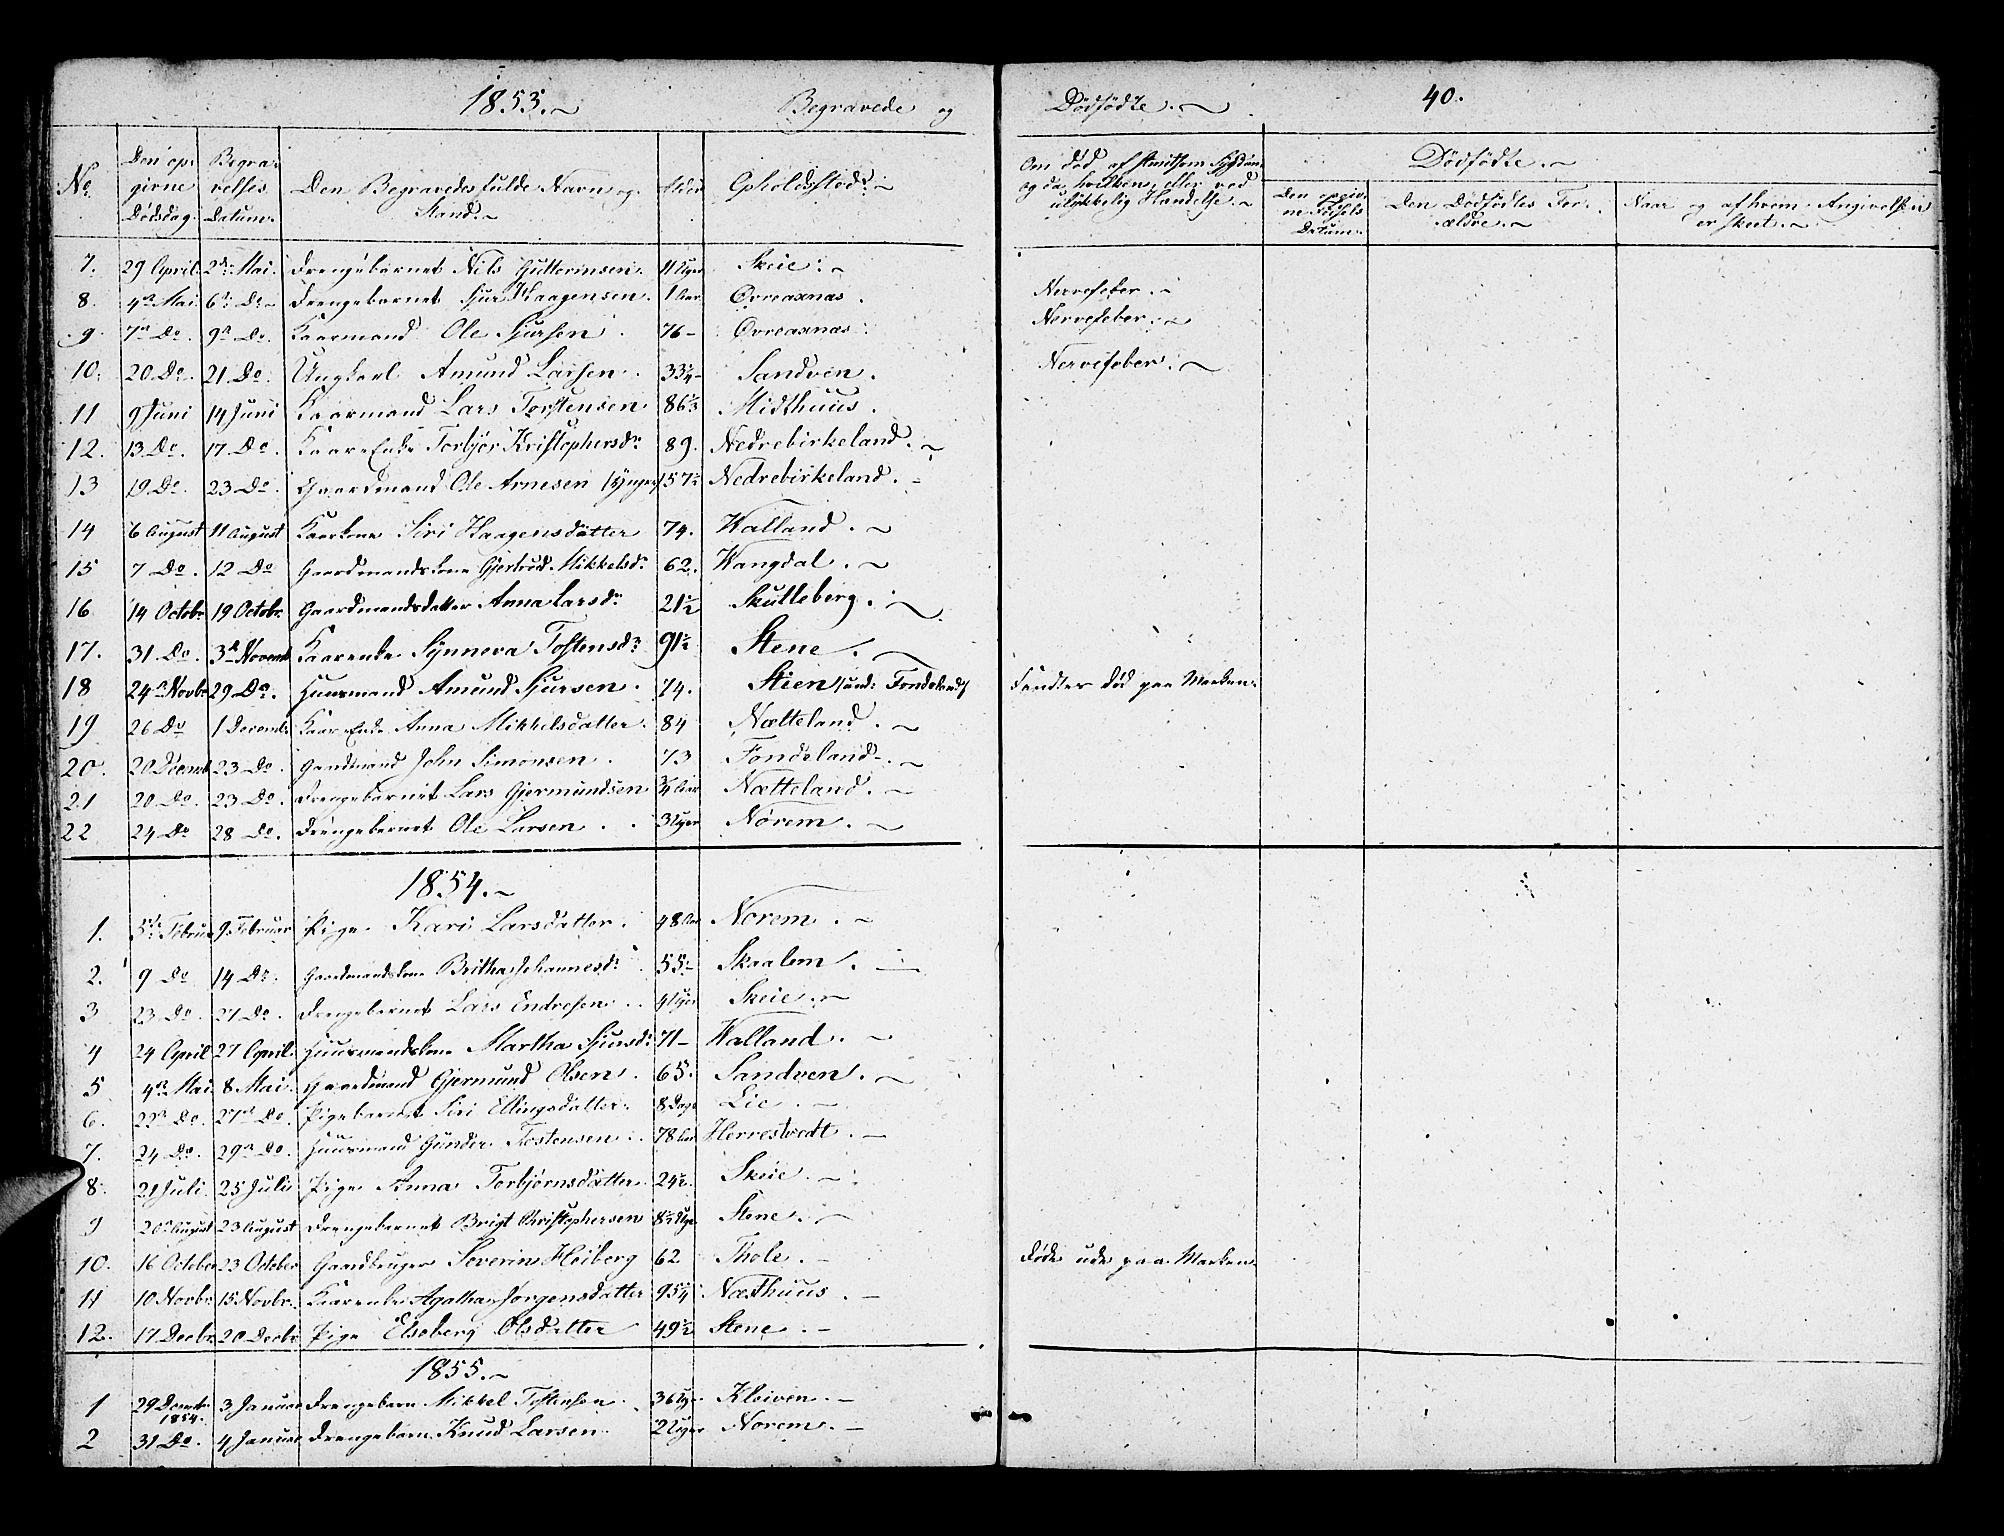 1853.~ Begravede og Dødfødte.~ 40.
No. Den op- Begra- Den Begravedes fulde Navn og Alder Opholdssted.~
givne velses Stand.~
Dødsdag. Datum.
Om død af smitsom Sygdom
og da hvilken, eller ved
ulykkelig Hændelse.~
Dødfødte.~
Den opgiv- Den Dødfødtes For- Naar og af hvem Angivelsen
ne Fødsels ældre.~ er skeet.~
Datum.
7. 29 April. 2de Mai. Drengebarnet Nils Guttormsen. 11 Uger Skeie.~
8. 4de Mai 6te Do Drengebarnet Sjur Haagensen. 1 Aar Øvreaxnæs. Nervefeber.~
9. 7de Do 9de Do. Kaarmand Ole Sjursen. 76- Øvreaxnæs. Nervefeber.~
10. 20 Do. 21 Do. Ungkarl Amund Larsen. 33¼- Sandven. Nervefeber.~
11 9 Juni 14 Juni Kaarmand Lars Torstensen 86⅓ Midthuus.
12. 13 Do. 17. Do. Kaar Enke Torbjør Kristophersdr 89. Nedrebirkeland.~
13 19 Do. 23 Do Gaardmand Ole Arnesen (yngre) 57½ Nedrebirkeland.-
14 6 August 11 August Kaarkone Siri Haagensdatter 74. Walland.~
15 7 Do. 12 Do Gaardmandskone Gjertrud Mikkelsdr 62. Wangdal.~
16 14 Octobr 19 Octobr. Gaardmandsdatter Anna Larsdr 21½ Skutleberg.~
17. 31. Do. 3de Novemb Kaarenke Synneva Tostensdr 91½ Stene.~
18 24de Novbr 29 Do. Huusmand Amund Sjursen. 74. Stien (und: Fondeland) Fandtes død paa Marken.
19 26 Do 1 Decembr Kaar Enke Anna Mikkelsdatter. 84 Nætteland.~
20. 20 Decemb 23 Do. Gaardmand John Simonsen. 73 Fondeland.~
21 20 Do. 23 Do. Drengebarnet Lars Gjermundsen ¾ Aar Nætteland.~
22 24 Do 28 Do. Drengebarnet Ole Larsen. 3 Uger Norem.~
1854.~
1. 5te Februar 9 Februar Pige Kari Larsdatter. 48 Aar Norem.~
2. 9 Do 14 Do. Gaardmandskone Britha Johannesdr 55- Skaalem.
3 23 Do. 27 Do. Drengebarnet Lars Endresen. 4 Uger Skeie.~
4 24 April 27 April. Huusmandskone Martha Sjursdr 71- Walland.~
5 4de Mai 8. Mai. Gaardmand Gjermund Olsen. 65. Sandven.~
6. 22de Do. 27de Do Pigebarnet Siri Ellingsdatter. 8 Dage Lie.~
7. 24 Do. 29de Do. Huusmand Gunder Tostensen. 78 Aar Herrestvedt.-
8. 21 Juli. 25 Juli Pige Anna Torbjørnsdatter. 24½. Skeie.~
9 20de August 23 August Drengebarnet Brigt Christophersen 8½ Uge. Stene.~
10. 16 October 23 October Gaardbruger Severin Heiberg 62 Thole.- Døde ude paa Marken.
11 10 Novbr. 15 Novbr. Kaarenke Agatha Jørgensdatter 95¼ Næsthuus.-
12. 17 Decbr 20 Decbr. Pige Elseberg Olsdatter 49½ Stene.-
1855.~
1 29 Decembr 3 Januar Drengebarn Mikkel Tostensen. 36 Uger Kleiven.-
1854.
2 31 Do. 4 Januar Drengebarn Knud Larsen. 2 Uger Norem.-